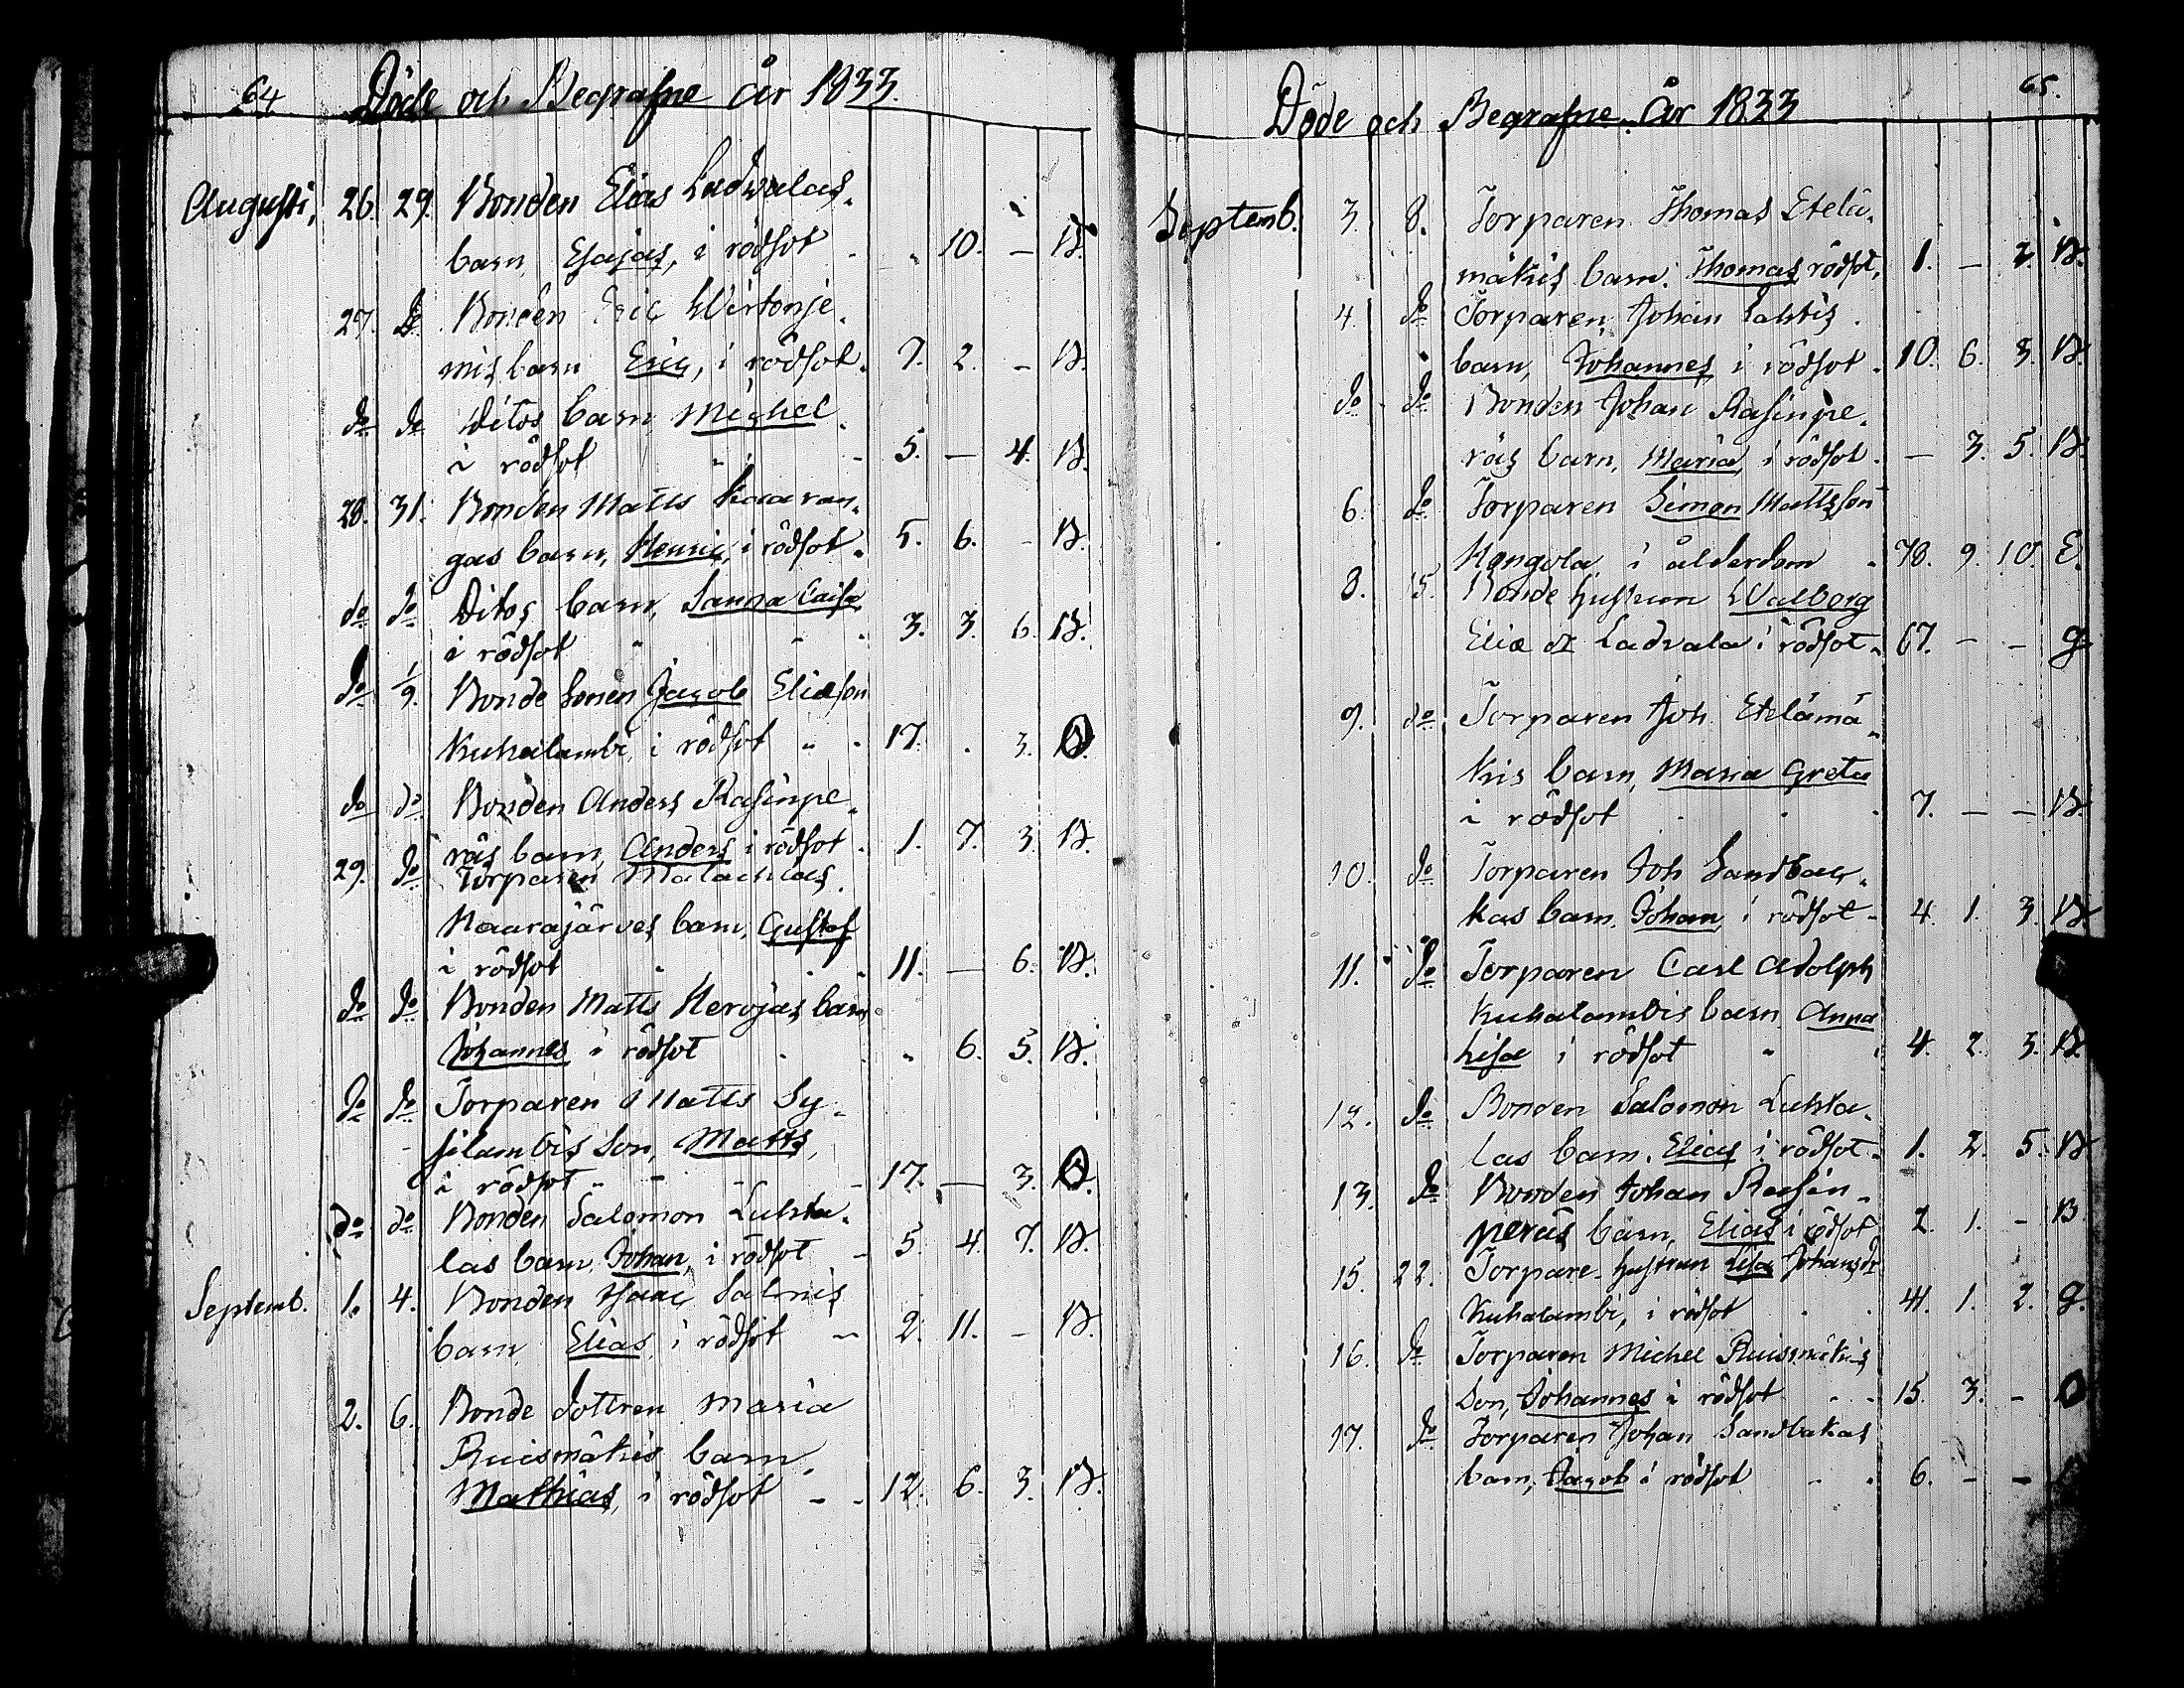 64 Döde och Begrafne år 1833.
Augusti, 26. 29. Bonden Elias Ladvalas
barn, Esajas, i rödsot - " 10. – B.
27. do Bonden Eric Wirtonje
mis barn Eric, i rödsot. 7. 2. – B.
do do Ditos barn Michel
i rödsot " - 5. – 4. B.
28. 31. Bonden Matts Kaaran
gas barn, Henric, i rödsot. 5. 6. – B.
do do Ditos barn, Sanna Caisa
i rödsot " " 3. 3. 6. B.
do 1/9. Bonde Sonen Jacob Eliæson
Kuhalambi, i rödsot " . 17. . 3.
do do Bonden Anders Rasinpe
räs barn, Anders i rödsot. 1. 7. 3. B.
29. do Torparen Malachias
Haarajärves barn, Gustaf
i rödsot " . 11. – 6. B.
do do Bonden Matts Herojas barn
Johannes i rödsot . . " 6. 5. B.
do do Torparen Matts Sy
silambis Son, Matts,
i rödsot " " - - 17. – 3.
do do Bonden Salomon Luhta
las barn, Johan, i rödsot - 5. 4. 7. B.
Septemb. 1. 4. Bonden Isaac Salmis
barn, Elias, i rödsot – 2. 11. – B.
2. 6. Bonde dottren Maria
Ruismäkis barn,
Mathias, i rödsot - - 12. 6. 3. B.
65.
Döde och Begrafne år 1833
Septemb. 3. 8. Torparen Thomas Etelä
mäkis barn, Thomas rödsot, 1. – 2. B.
4. do Torparen, Johan Lahtis
barn, Johannes i rödsot. 10. 6. 3. B.
do do Bonden Johan Rasinpe
räs barn, Maria, i rödsot. – 3. 5. B.
6. do Torparen Simon Mattsson
Kangola, i ålderdom . 78. 9. 10. E.
8. 15. Bonde hustrun Walborg
Eliæ dr Ladvala i rödsot. 67. – – G
9. do Torparen Joh. Etelämä
kis barn, Maria Greta
i rödsot . . . 7. – – B.
10. do Torparen Joh Sandbac
kas barn, Johan, i rödsot - 4. 1. 3. B
11. do Torparen Carl Adolph
Kuhalambis barn Anna
Lisa i rödsot " . 4. 2. 3. B.
12. do Bonden Salomon Luhta
las barn, Elias i rödsot. 1. 2. 5. B
13. do Bonden Johan Rasin
peräs barn, Elias i rödsot 2. 1. – B
15. 22. Torpare hustrun Lisa Johansdr
Kuhalambi, i rödsot . . 41. 1. 2. G.
16. do Torparen Michel Ruismäkis
Son, Johannes i rödsot . . 15. 3. –
17. do Torparen Johan Sandbakas
barn, Jacob i rödsot - . 6. – –